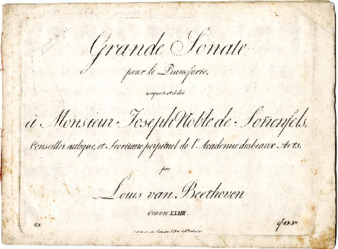 Grande Sonate
pour le Pianoforte,
à Monsieur Joseph Noble de Sonnenfels,
Conseiller aulique, et Secrétaire perpétuel de l'Academie des beaux Arts.
par
Louis van Beethoven
Oeuvre XXVIII